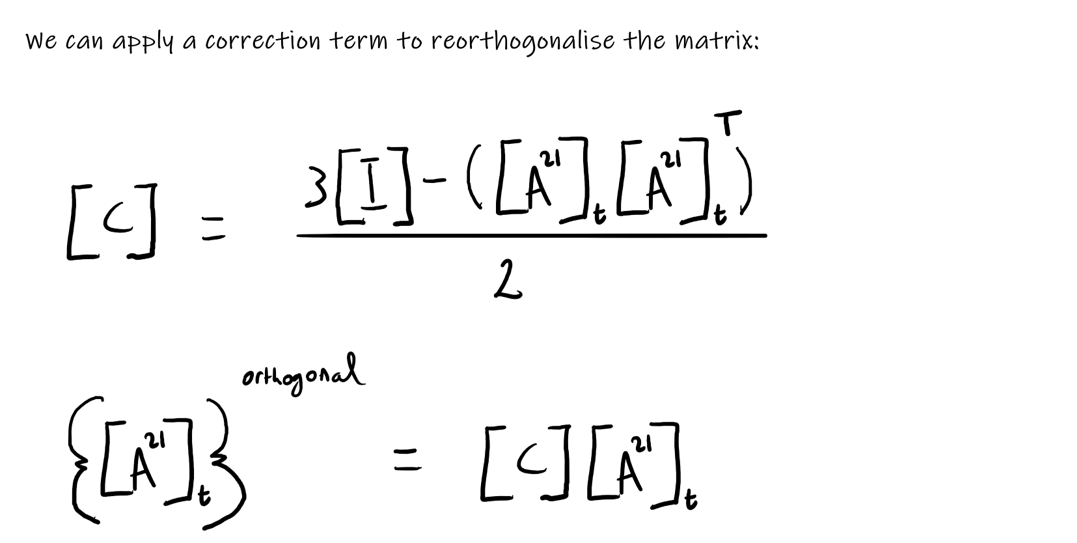 We can apply a correction term to reorthogonalise the matrix:
[C] = (3[I] - ([A²¹]ₜ [A²¹]ₜᵀ)) / 2
{[A²¹]ₜ}ᵒʳᵗʰᵒᵍᵒⁿᵃˡ = [C][A²¹]ₜ